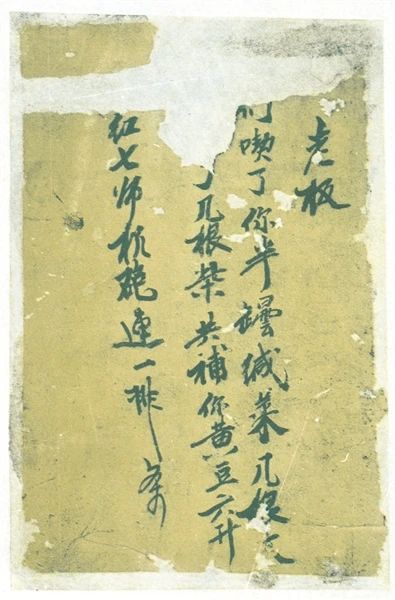 老板
喫了你半罎缄菜几根
了几根柴共補你黄豆六升
红七师机砲連一排条